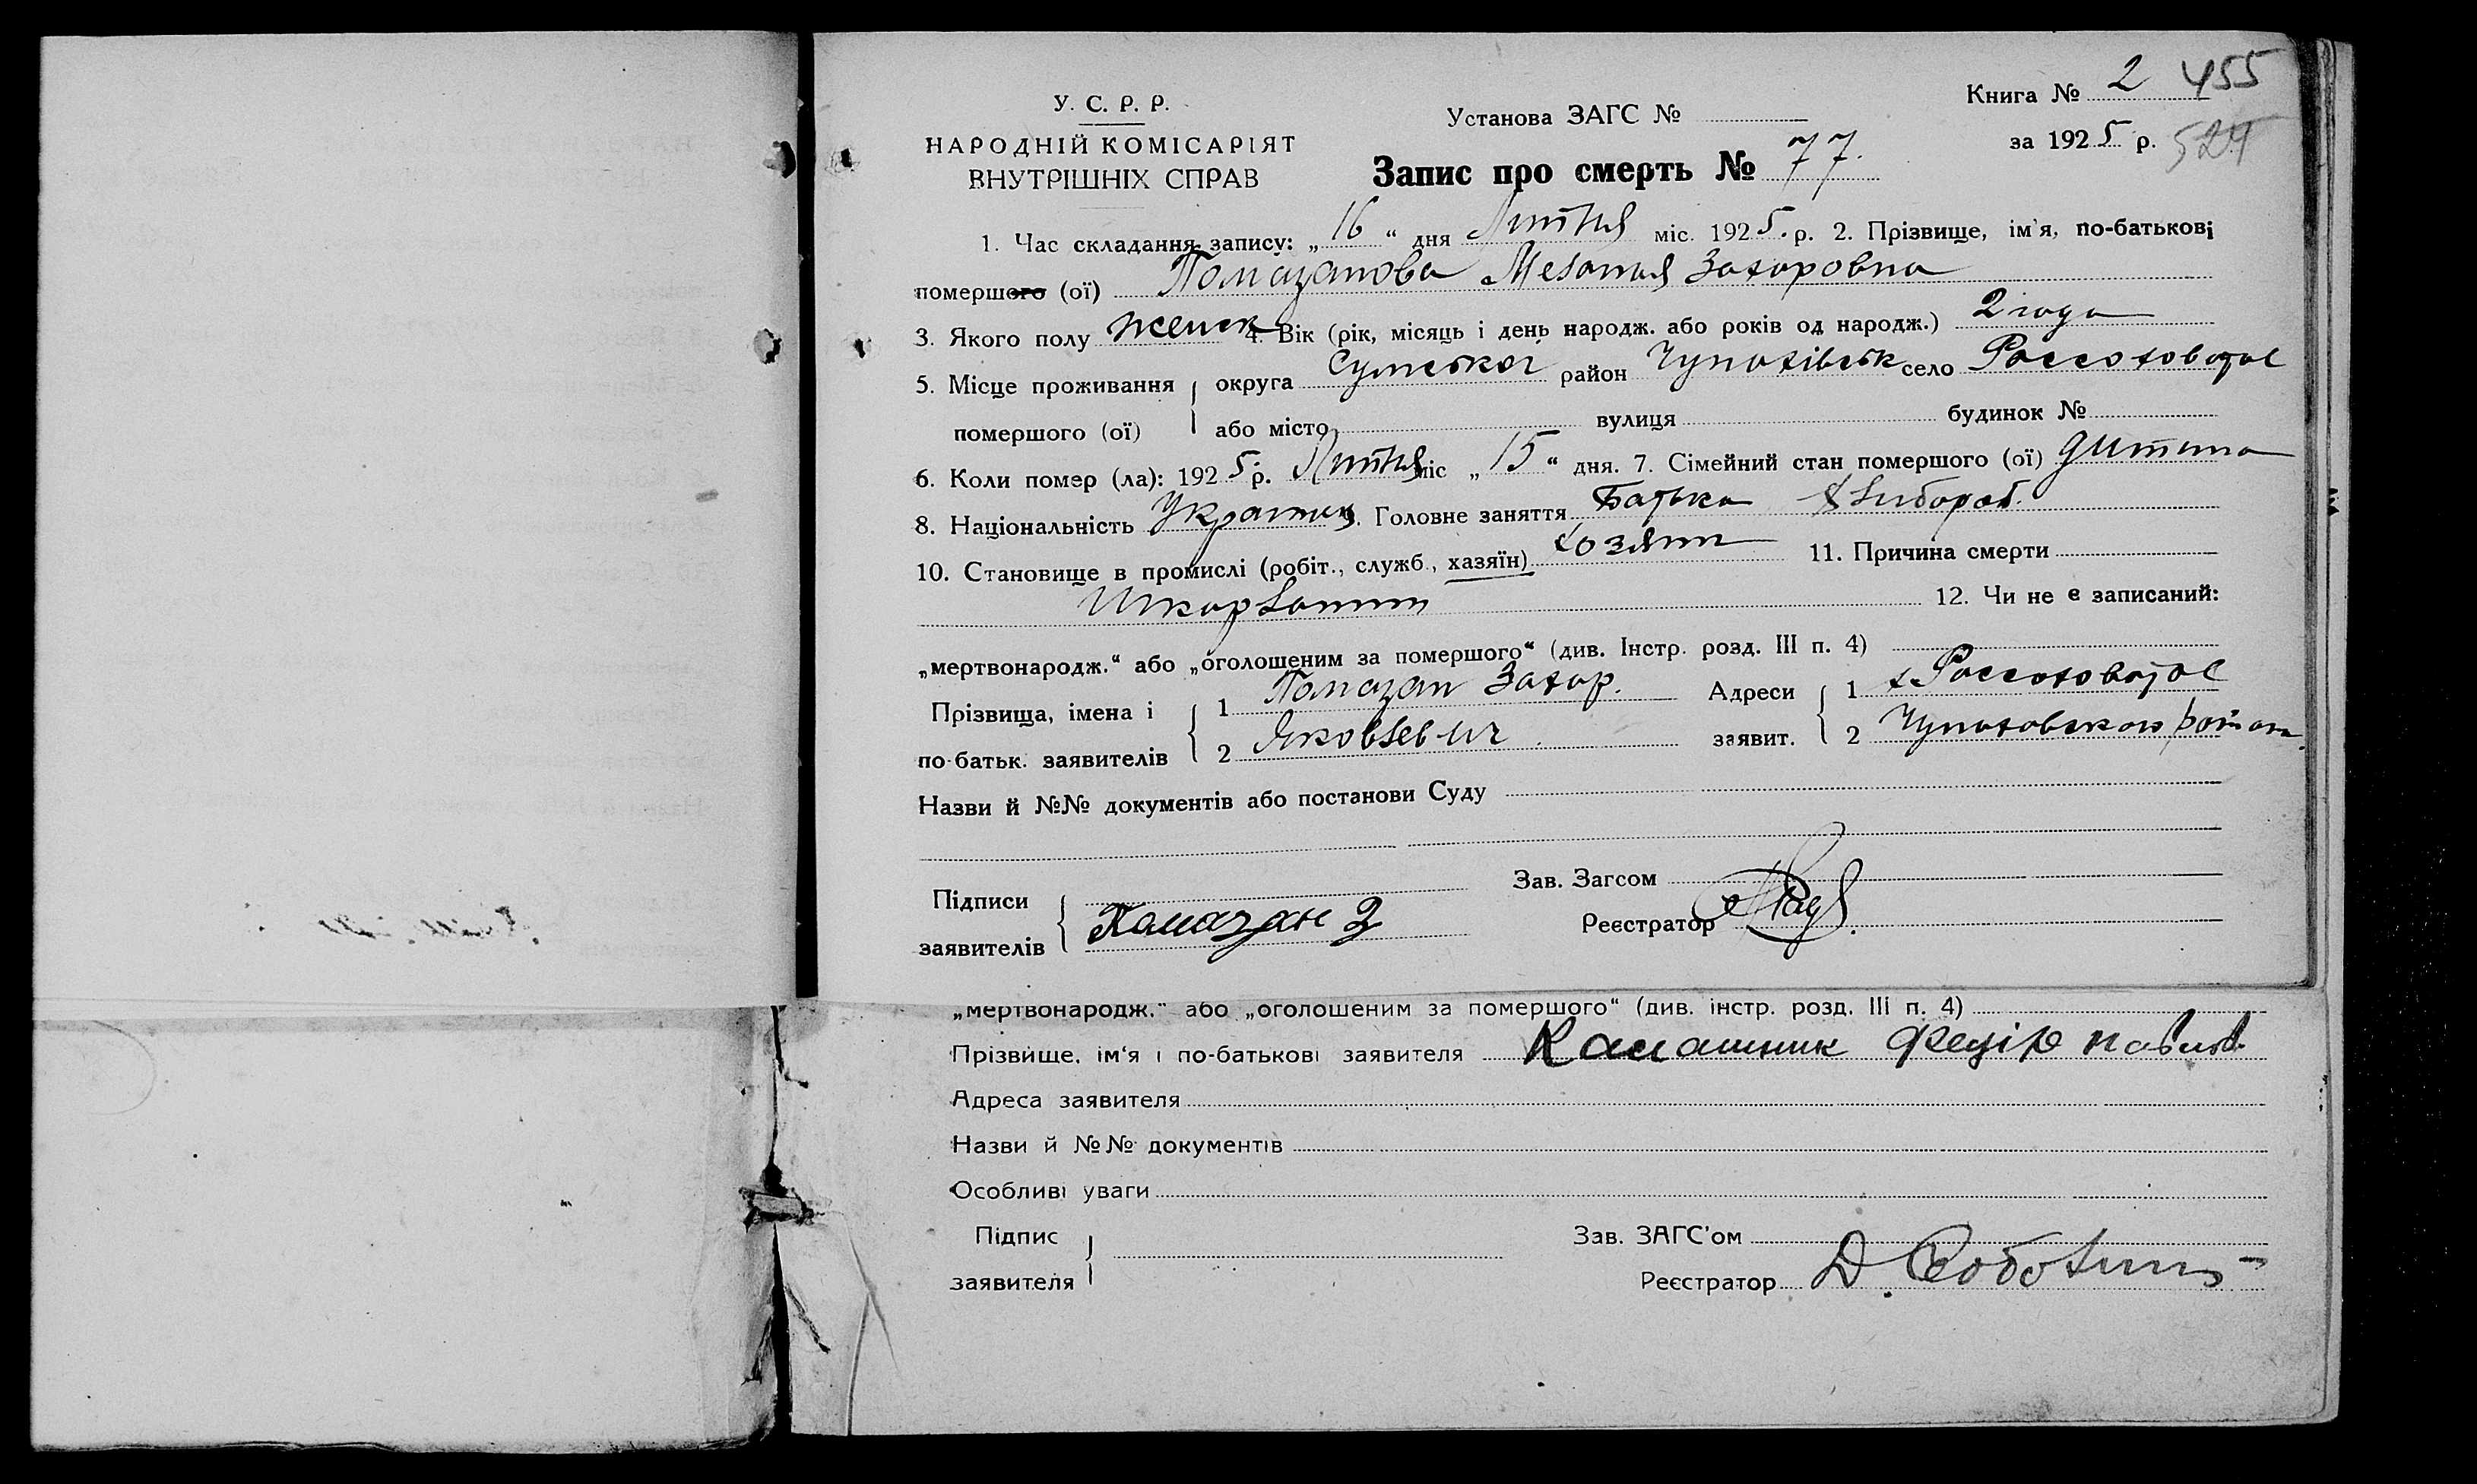 Книга № 2 455
У. С. Р. Р.
Установа ЗАГС №
за 1925 р. 524
НАРОДНІЙ КОМІСАРІЯТ
ВНУТРІШНІХ СПРАВ
Запис про смерть № 77.
1. Час складання запису: „16“ дня Липня міс. 1925. р. 2. Прізвище, ім'я, по-батькові
помершого (ої) Помазанова Меланья Захаровна
3. Якого полу женск 4. Вік (рік, місяць і день народж. або років од народж.) 2 года
5. Місце проживання округа Сумської район Чупахівськ село Россоховатое
помершого (ої) або місто вулиця будинок №
6. Коли помер (ла): 1925 р. Липня міс „15“ дня. 7. Сімейний стан помершого (ої) дитина
8. Національність Украинц 9. Головне заняття Батька хлібороб.
10. Становище в промислі (робіт., служб., хазяїн) хозяин 11. Причина смерти
Шкарлатин 12. Чи не є записаний:
„мертвонародж.“ або „оголошеним за помершого“ (див. Інстр. розд. III п. 4)
Прізвища, імена і 1 Помазан Захар. Адреси 1 х Россоховатое
по-батьк. заявителів 2 Яковлевич. заявит. 2 Чупаховского район.
Назви й №№ документів або постанови Суду
Зав. Загсом
Підписи
заявителів Помазан З Реєстратор
„мертвонародж.“ або „оголошеним за помершого“ (див. інстр. розд. III п. 4)
Прізвище, ім'я і по-батькові заявителя Калашник Федір Павлов.
Адреса заявителя
Назви й №№ документів
Особливі уваги
Підпис Зав. ЗАГС'ом
заявителя Реєстратор Д.